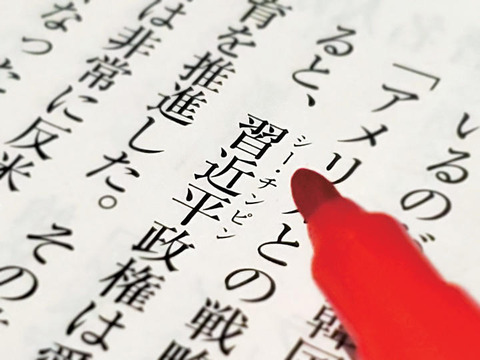 いるのが韓国
「アメリカとの戦略
ると、習近平政権は
シー・チンピン
育を推進した。その
は非常に反米
なった